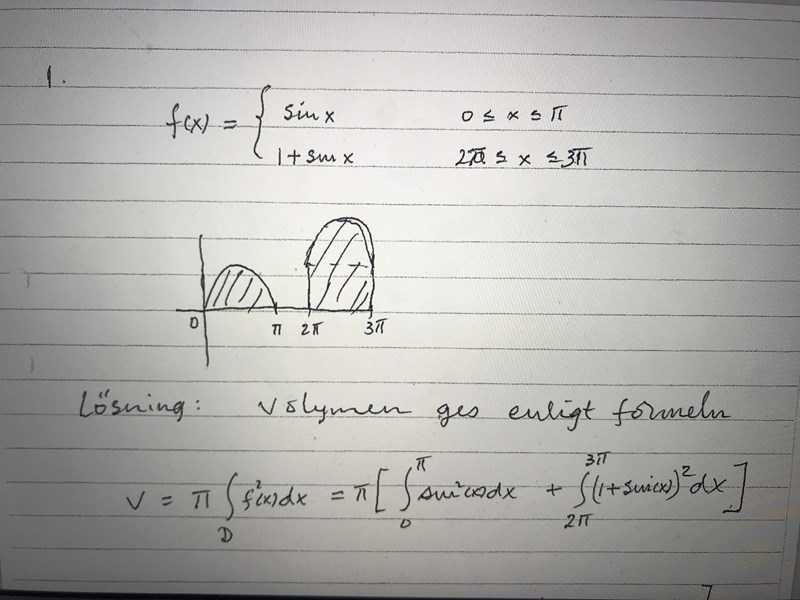 1.
f(x) = { sin x 0 ≤ x ≤ π
1 + sin x 2π ≤ x ≤ 3π
0 π 2π 3π
Lösning: Volymen ges enligt formeln
V = π ∫_D f²(x)dx = π[ ∫_0^π sin²(x)dx + ∫_{2π}^{3π} (1+sin(x))² dx ]